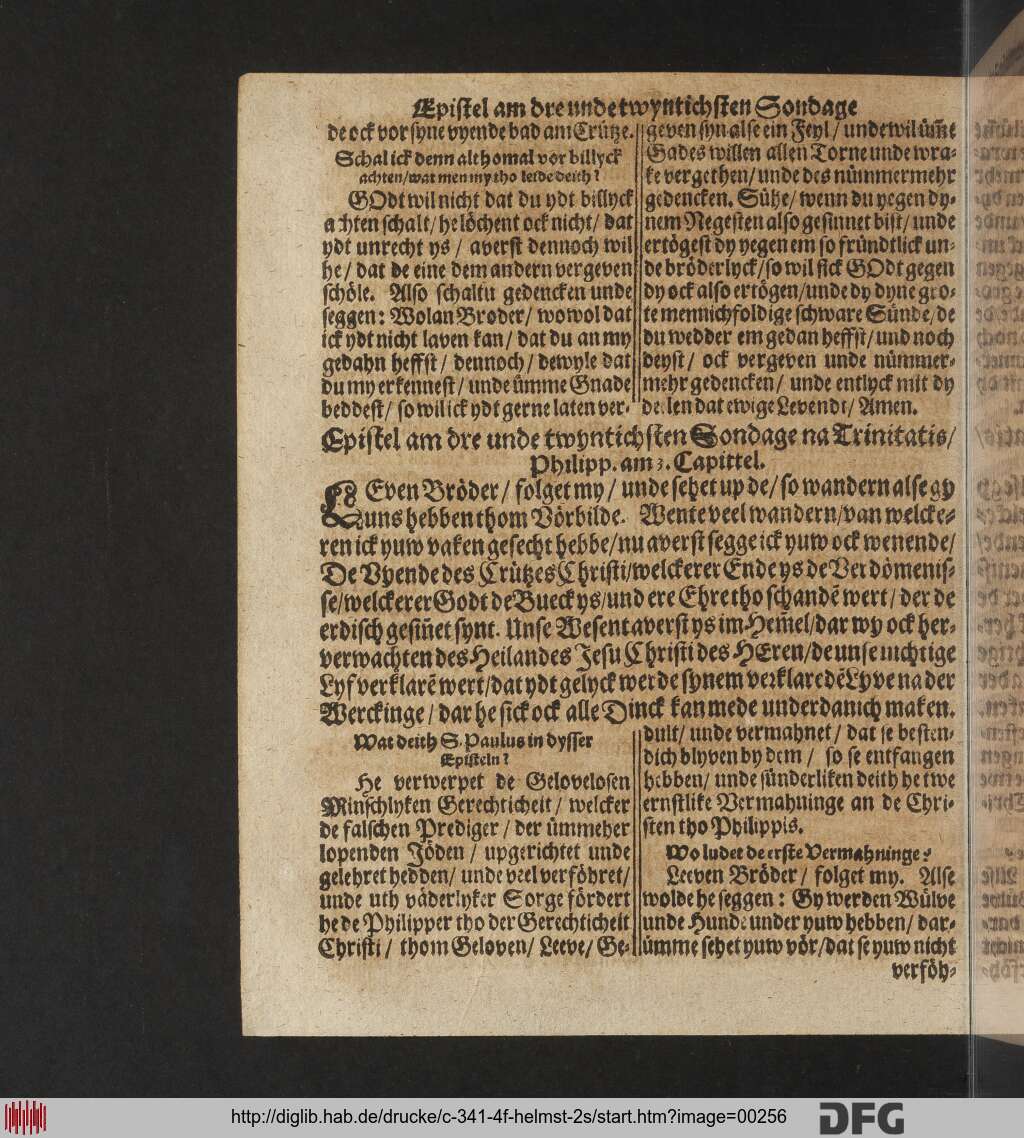 Epistel am dre unde twyntichsten Sondage
de ock vor syne vyende bad am Crütze.
Schal ick denn althomal vor billyck
achten/ wat men my tho leide deith?
GOdt wil nicht dat du ydt billyck
achten schalt/ he löchent ock nicht/ dat
ydt unrecht ys/ averst dennoch wil
he/ dat de eine dem andern vergeven
schöle. Also schaltu gedencken unde
seggen: Wolan Broder/ wowol dat
ick ydt nicht laven kan/ dat du an my
gedahn heffst/ dennoch/ dewyle dat
du my erkennest/ unde ümme Gnade
beddest/ so wil ick ydt gerne laten ver-
geven syn alse ein Feyl/ unde wil üm̃e
Gades willen allen Torne unde wra-
ke vergethen/ unde des nümmermehr
gedencken. Sühe/ wenn du yegen dy-
nem Negesten also gesinnet bist/ unde
ertögest dy yegen em so fründtlick un-
de bröderlyck/ so wil sick GOdt gegen
dy ock also ertögen/ unde dy dyne gro-
te mennichfoldige schware Sünde/ de
du wedder em gedan heffst/ und noch
deyst/ ock vergeven unde nümmer-
mehr gedencken/ unde entlyck mit dy
deelen dat ewige Levendt/ Amen.
Epistel am dre unde twyntichsten Sondage na Trinitatis/
Philipp. am 3. Capittel.
LEven Bröder/ folget my/ unde sehet up de/ so wandern alse gy
uns hebben thom Vörbilde. Wente veel wandern/ van welcke-
ren ick yuw vaken gesecht hebbe/ nu averst segge ick yuw ock wenende/
De Vyende des Crützes Christi/ welckerer Ende ys de Verdömenis-
se/ welckerer Godt de Bueck ys/ und ere Ehre tho schandẽ wert/ der de
erdisch gesiñet synt. Unse Wesent averst ys im Hem̃el/ dar wy ock her-
verwachten des Heilandes Jesu Christi des HEren/ de unse nichtige
Lyf verklarẽ wert/ dat ydt gelyck werde synem verklaredẽ Lyve na der
Werckinge/ dar he sick ock alle Dinck kan mede underdanich maken.
Wat deith S. Paulus in dysser
Episteln?
He verwerpet de Gelovelosen
Minschlyken Gerechticheit/ welcker
de falschen Prediger/ der ümmeher
lopenden Jöden/ upgerichtet unde
gelehret hedden/ unde veel verföhret/
unde uth väderlyker Sorge fördert
he de Philipper tho der Gerechticheit
Christi/ thom Geloven/ Leeve/ Ge-
dult/ unde vermahnet/ dat se besten-
dich blyven by dem/ so se entfangen
hebben/ unde sünderliken deith he twe
ernstlike Vermahninge an de Chri-
sten tho Philippis.
Wo ludet de erste Vermahninge?
Leeven Bröder/ folget my. Alse
wolde he seggen: Gy werden Wülve
unde Hunde under yuw hebben/ dar-
ümme sehet yuw vör/ dat se yuw nicht
verföh-
http://diglib.hab.de/drucke/c-341-4f-helmst-2s/start.htm?image=00256
DFG